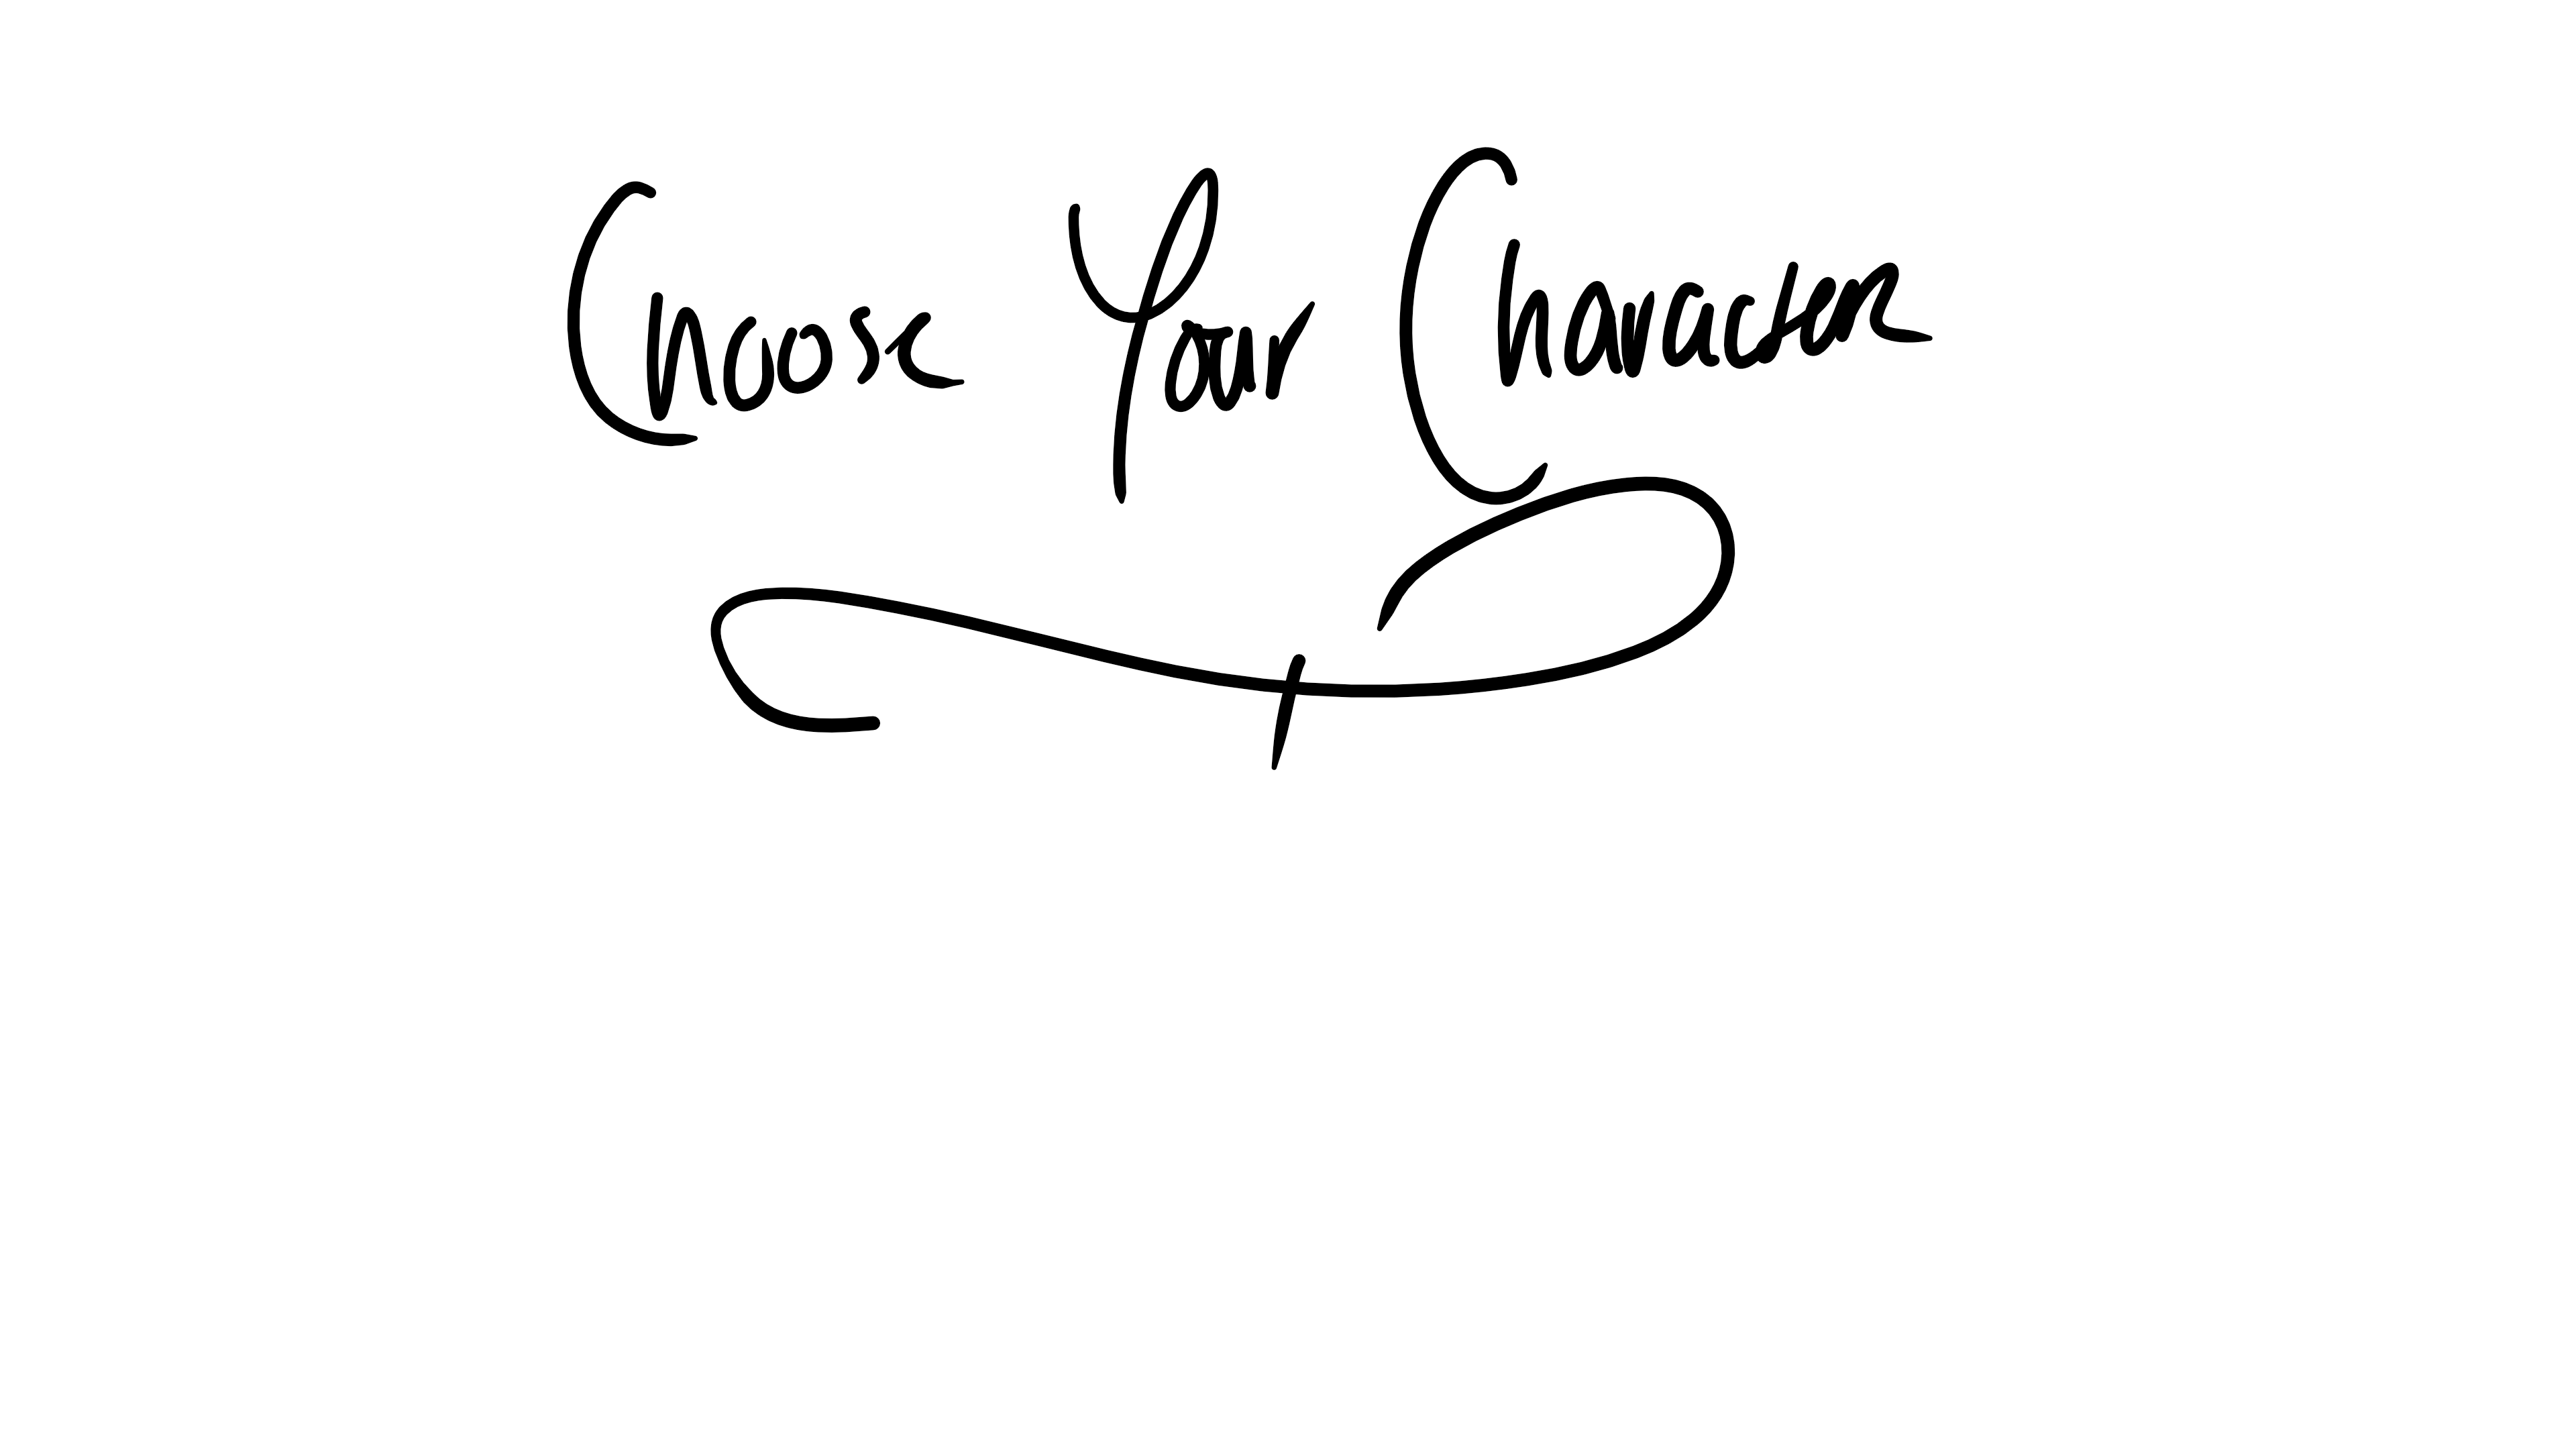 Choose Your Character